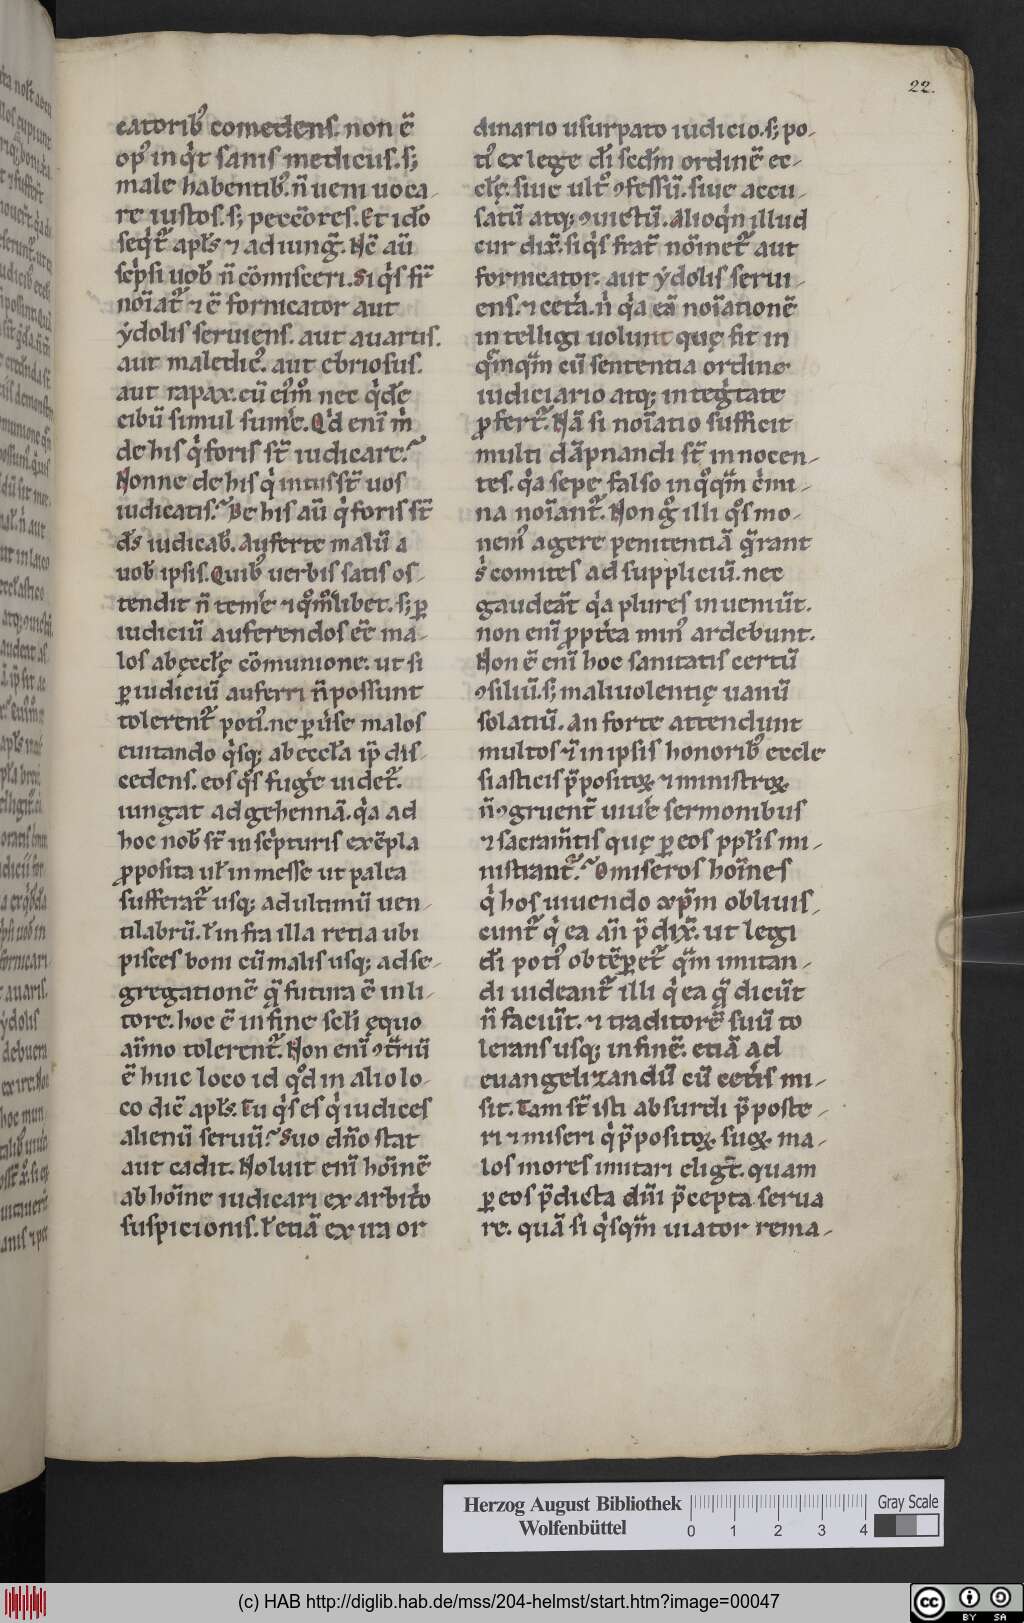 22.
catorib᷒ comedens. non ē
op᷒ inq̇t sanis medicus. s;
male habentib᷒. n̄ ueni uoca-
re iustos. s; peccōres. Et ido̅
seq̇t᷑ apl̅s ⁊ adiung̅. Nē aū
sċpsi uob̅ n̄ cōmisceri. Si q̇s fr̅
noīat᷑ ⁊ ē fornicator aut
ẏdolis seruiens. aut auarus.
aut maledic᷒. aut ebriosus.
aut rapax. cū ei᷒mͦ nec q̇de̅
cibū simul sume̅. Qḋ enī ṁ
de his q̇ foris st̅ iudicare?
Nonne de his q̇ intus st̅ uos
iudicatis? De his aū q̇ foris st̅
ds̅ iudicab̅. Auferte malū a
uob̅ ipsis. Quib᷒ uerbis satis os-
tendit n̄ teme̅ ⁊ qͦmͦlibet. s; ꝑ
iudiciū auferendos eē ma-
los ab ęccl̅ę cōmunione. ut si
ꝑ iudiciū auferri n̄ possunt
tolerent᷑ poti᷒. ne ꝑuse̅ malos
euitando q̇sq; ab eccl̅a ip̄ dis-
cedens. eos qͦs fuge̅ uidet᷑.
iungat ad gehennā. q̇a ad
hoc nob̅ st̅ in sċpturis exēpla
ꝓposita ul̅ in messe ut palea
sufferat᷑ usq; ad ultimū uen-
tilabrū. l̅ infra illa retia ubi
pisces boni cū malis usq; ad se-
gregationē q̄ futura ē in li-
tore. hoc ē in fine scl̅i ęquo
aīmo tolerent᷑. Non enī ꝯt̅riū
ē huic loco id qͦd in alio lo-
co dic̄ apl̅s. Tu q̇s es q̇ iudices
alienū seruū? Suo dn̄o stat
aut cadit. Noluit enī hoīnē
ab hoīne iudicari ex arbit̅o
suspicionis. l̅ etiā ex t̅ra or
dinario usurpato iudicio. s; po-
ti᷒ ex lege dī secd̅m ordinē ec-
cl̅ę. siue ult͛ ꝯfessū. siue accu-
satū atq; ꝯuictū. Alioq̇n illud
cur dix̅. si q̇s frat̅ nōinet᷑ aut
fornicator. aut ẏdolis serui-
ens. ⁊ cet̅a. n̄ q̇a eā noīationē
intelligi uoluit quę fit in
qͤmqͣm cū sententia ordine
iudiciario atq; integ̅tate
ꝓfert᷑. Nā si noīatio sufficit
multi dāpnandi st̅ innocen-
tes. q̇a sepe falso in qͦqͣm c̅mi-
na noīant᷑. Non gͦ illi qͦs mo-
nem᷒ agere penitentiā q̄rant
s̅ comites ad suppliciū. nec
gaudeāt q̇a plures inueniūt.
non enī ꝓpt̅ea min᷒ ardebunt.
Non ē enī hoc sanitatis certū
ꝯsiliū. s; maliuolentię uanū
solatiū. An forte attendunt
multos ⁊ in ipsis honorib᷒ eccle
siasticis p̄positoꝝ ⁊ ministroꝝ
n̄ ꝯgruent̅ uiue̅ sermonibus
⁊ sacram̄tis quę ꝑ eos ppl̅is mi-
nistrant᷑? O miseros hoīnes
q̇ hos uiuendo xp̄m obliuis-
cunt᷑ q̇ ea añ p̄dix̅. ut legi
dī poti᷒ obtēꝑet᷑ qͣm imitan-
di uideant᷑ illi q̇ ea q̄ dicūt
n̄ faciūt. ⁊ traditorē suū to
lerans usq; in finē. etiā ad
euangelizandū cū cet̅is mi-
sit. Tam st̅ isti absurdi p̄poste-
ri ⁊ miseri q̇ p̄positoꝝ suoꝝ ma-
los mores imitari elig̅t. quam
ꝑ eos p̄dicta dn̄i p̄cepta serua
re. quā si q̇sqͣm uiator rema-
Herzog August Bibliothek
Wolfenbüttel
0 1 2 3 4
Gray Scale
(c) HAB http://diglib.hab.de/mss/204-helmst/start.htm?image=00047
cc BY SA